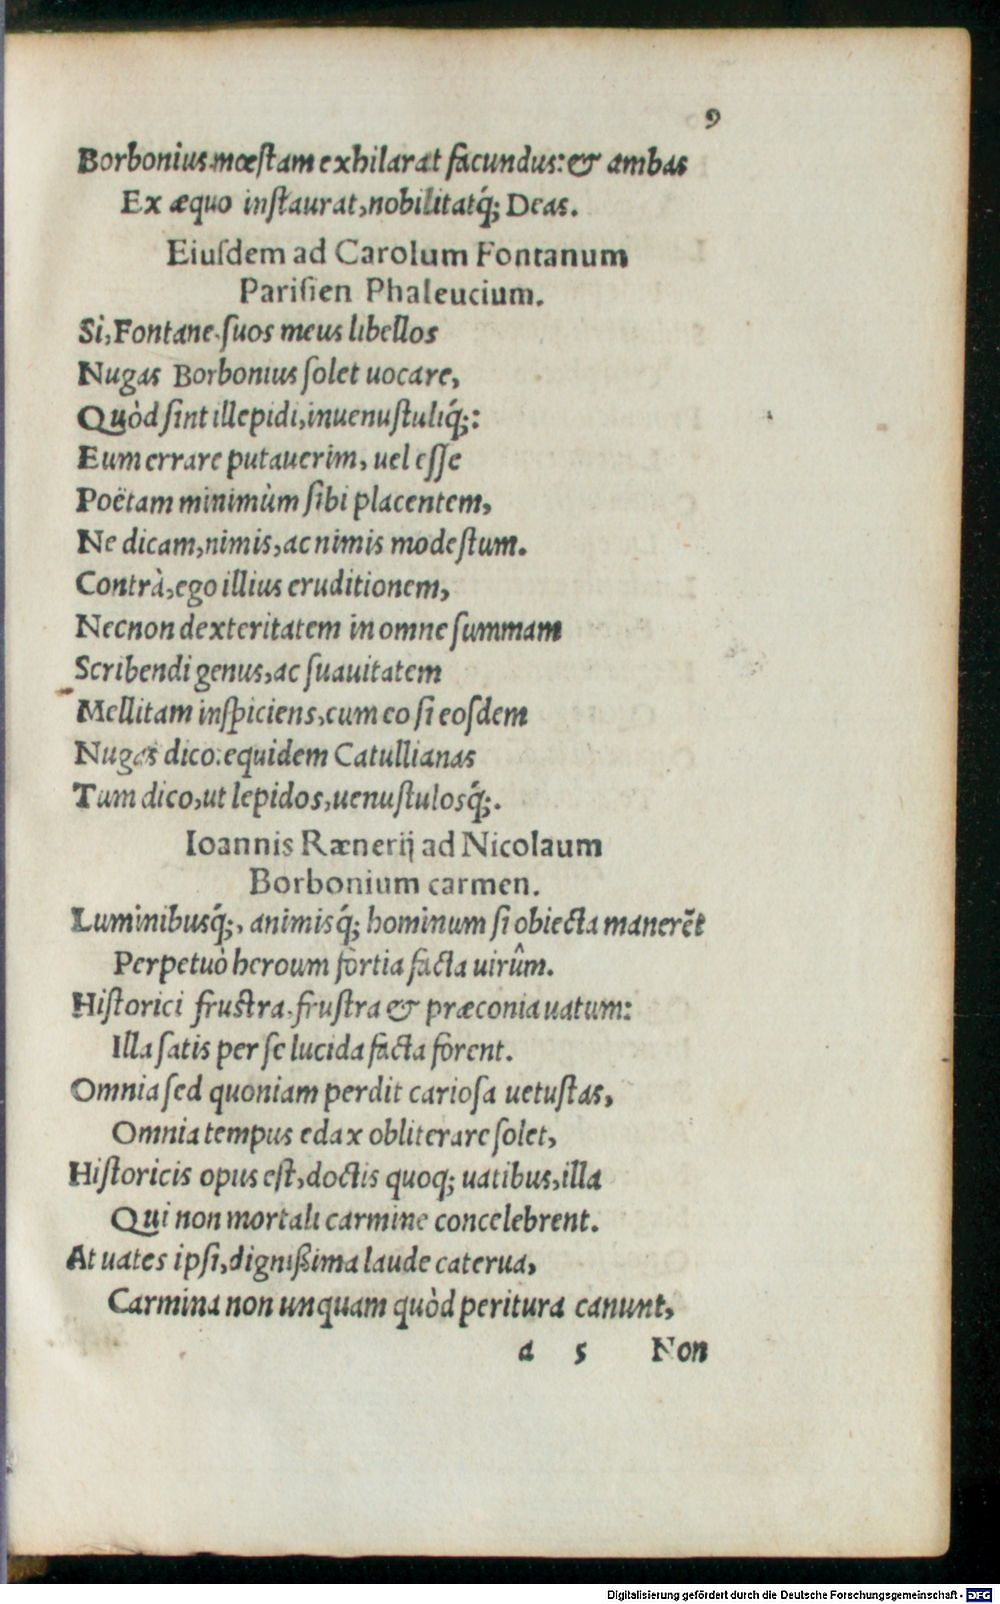 9
Borbonius mœſtam exhilarat facundus: & ambas
Ex æquo inſtaurat, nobilitatq́; Deas.
Eiuſdem ad Carolum Fontanum
Pariſien Phaleucium.
Si, Fontane, ſuos meus libellos
Nugas Borbonius ſolet uocare,
Quòd ſint illepidi, inuenuſtuliq́;:
Eum errare putauerim, uel eſſe
Poëtam minimùm ſibi placentem,
Ne dicam, nimis, ac nimis modeſtum.
Contrà, ego illius eruditionem,
Necnon dexteritatem in omne ſummam
Scribendi genus, ac ſuauitatem
Mellitam inſpiciens, cum eo ſi eoſdem
Nugas dico: equidem Catullianas
Tum dico, ut lepidos, uenuſtulosq́;.
Ioannis Rænerij ad Nicolaum
Borbonium carmen.
Luminibusq́;, animisq́; hominum ſi obiecta manerẽt
Perpetuò heroum fortia facta uirûm.
Hiſtorici fruſtra, fruſtra & præconia uatum:
Illa ſatis per ſe lucida facta forent.
Omnia ſed quoniam perdit carioſa uetuſtas,
Omnia tempus edax obliterare ſolet,
Hiſtoricis opus eſt, doctis quoq; uatibus, illa
Qui non mortali carmine concelebrent.
At uates ipſi, digniſsima laude caterua,
Carmina non unquam quòd peritura canunt,
a 5 Non
Digitalisierung gefördert durch die Deutsche Forschungsgemeinschaft - DFG